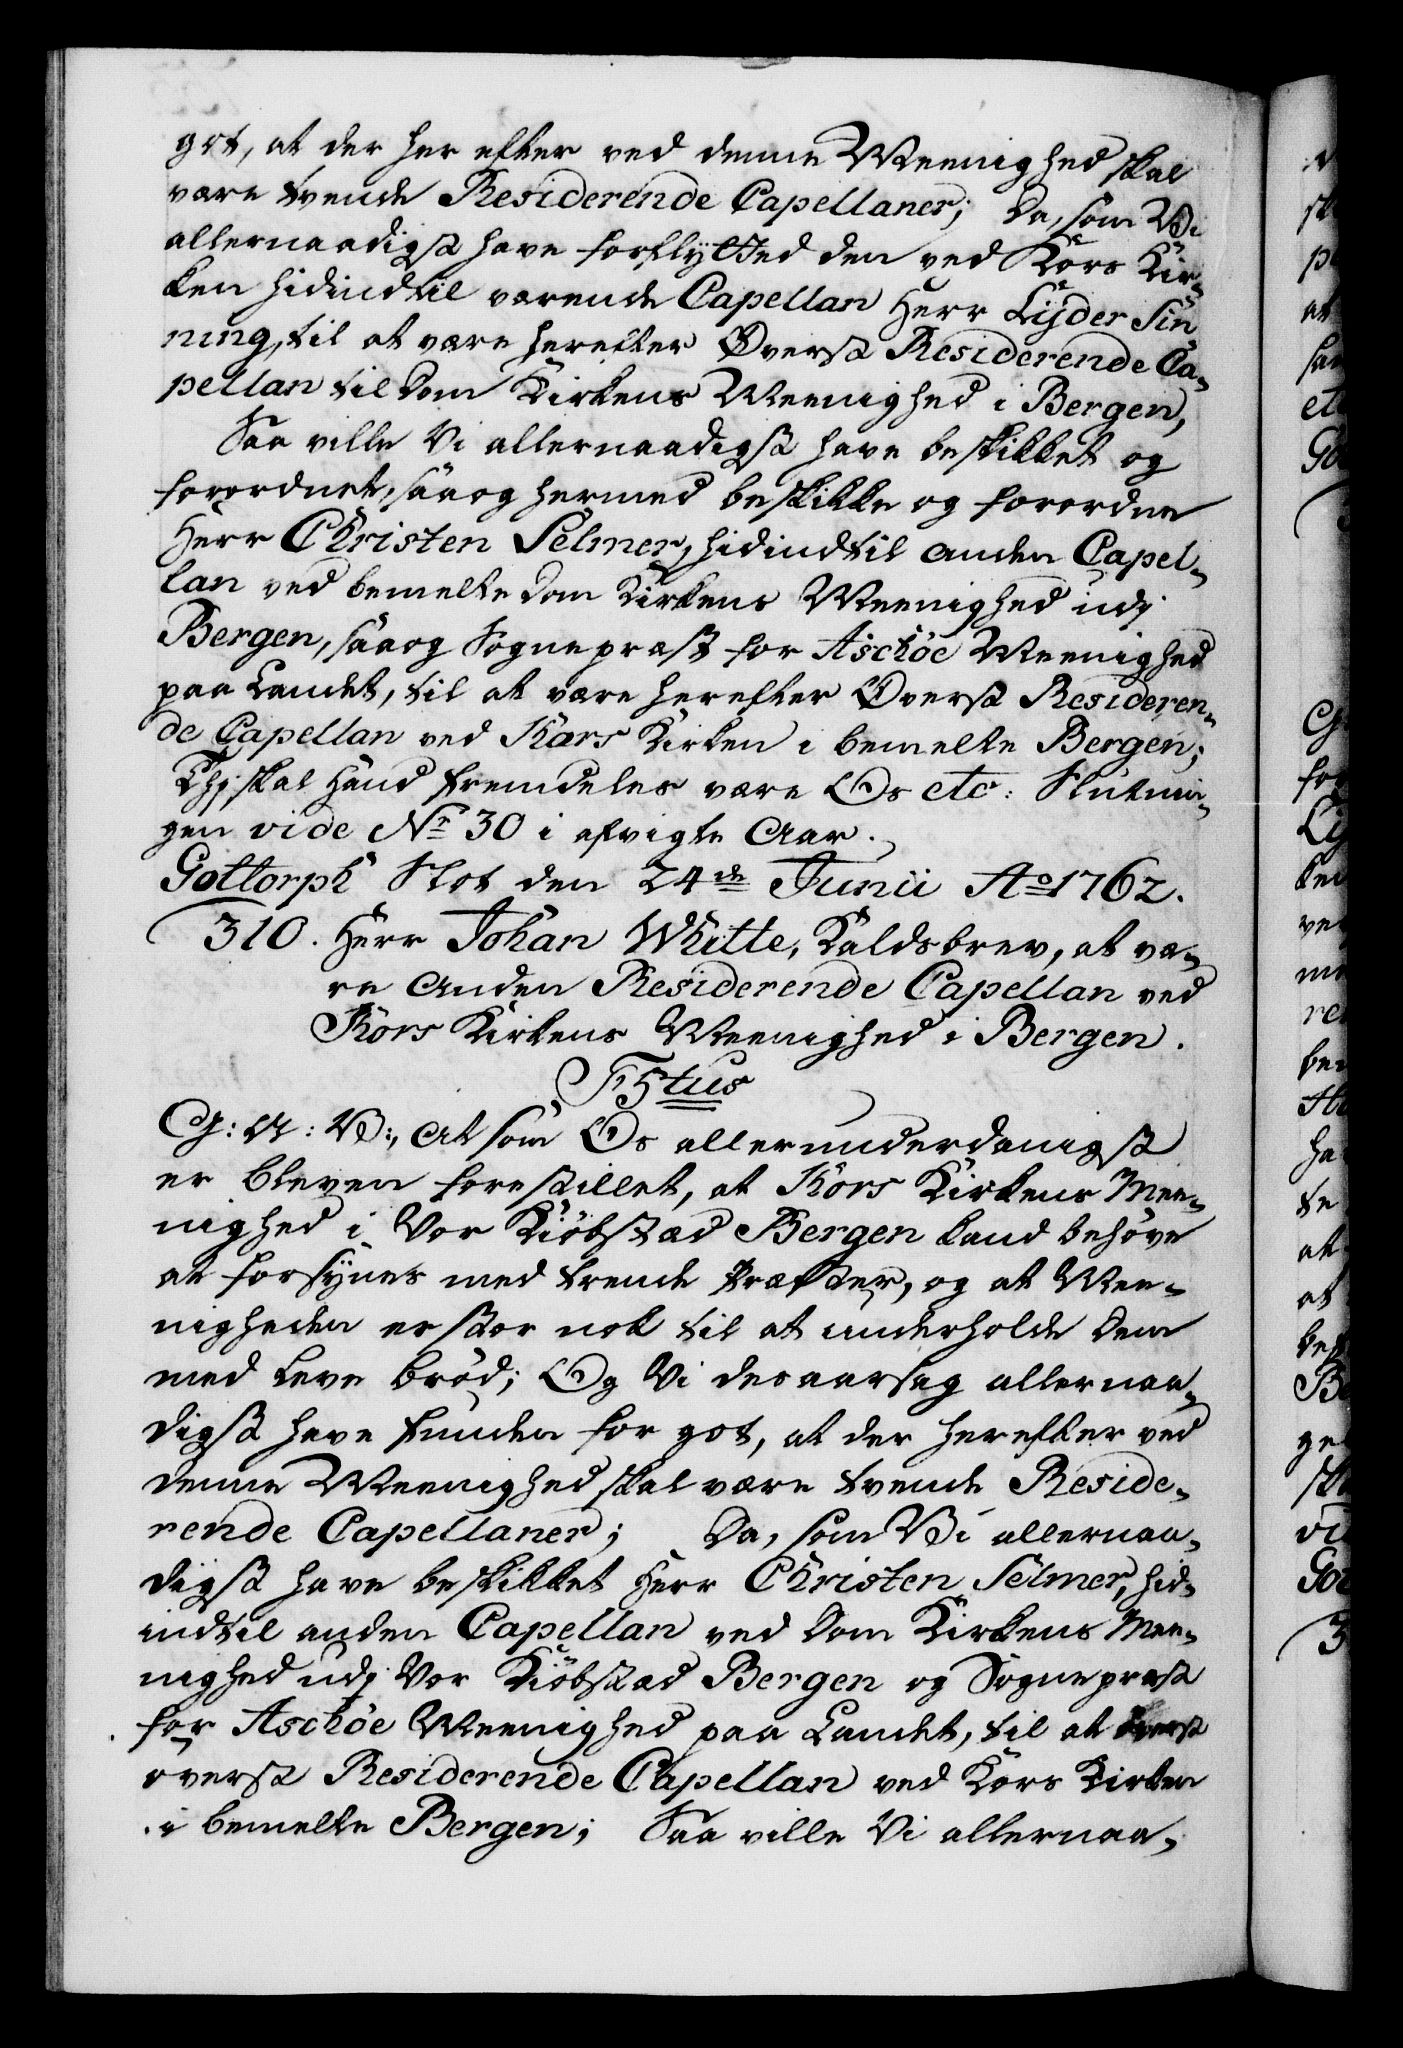 got, at der her efter ved denne Meenighed skal
være tvende Residerende Capellaner; Da, som Vi
allernaadigst have forflytted den ved Kors Kir-
ken hidindtil værende Capellan Herr Lyder Sin
ning, til at være herefter Øverst Residerende Ca-
pellan til Dom Kirkens Meenighed i Bergen,
Saa ville Vi allernaadigst have beskikket og
forordnet, saa og hermed beskikke og forordne
Herr Christen Selmer, hidindtil Anden Capel-
lan ved bemelte Dom Kirkens Meenighed udj
Bergen, saa og Sognepræst for Asckøe Meenighed
paa Landet, til at være herefter Øverst Resideren-
de Capellan ved Kors Kirken i bemelte Bergen;
Thj skal Hand fremdeles være Os etc: Slutnin-
gen vide No. 30 i afvigte Aar.
Gottorph Slot den 24de Junii Ao 1762.
310. Herr Johan Whitte, Kaldsbrev, at væ-
re Anden Residerende Capellan ved
Kors Kirkens Meenighed i Bergen.
F5tus
G: A: V:, At som Os allerunderdanigst
er bleven forestillet, at Kors Kirkens Mee-
nighed i Vor Kiöbstæd Bergen kand behöve
at forsynes med trende Præster, og at Mee-
nigheden er stor nok til at underholde dem
med leve bröd; Og Vi desaarsag allernaa-
digst have funden for got, at der herefter ved
denne Meenighed skal være tvende Reside-
rende Capellaner; Da, som Vi allernaa-
digst have beskikket Herr Christen Selmer, hid-
indtil anden Capellan ved Dom Kirkens Mee-
nighed udj Vor Kiöbstæd Bergen og Sognepræst
for Asckøe Meenighed paa Landet, til at
øverst Residerende Capellan ved Kors Kirken
i bemelte Bergen; Saa ville Vi allernaa-